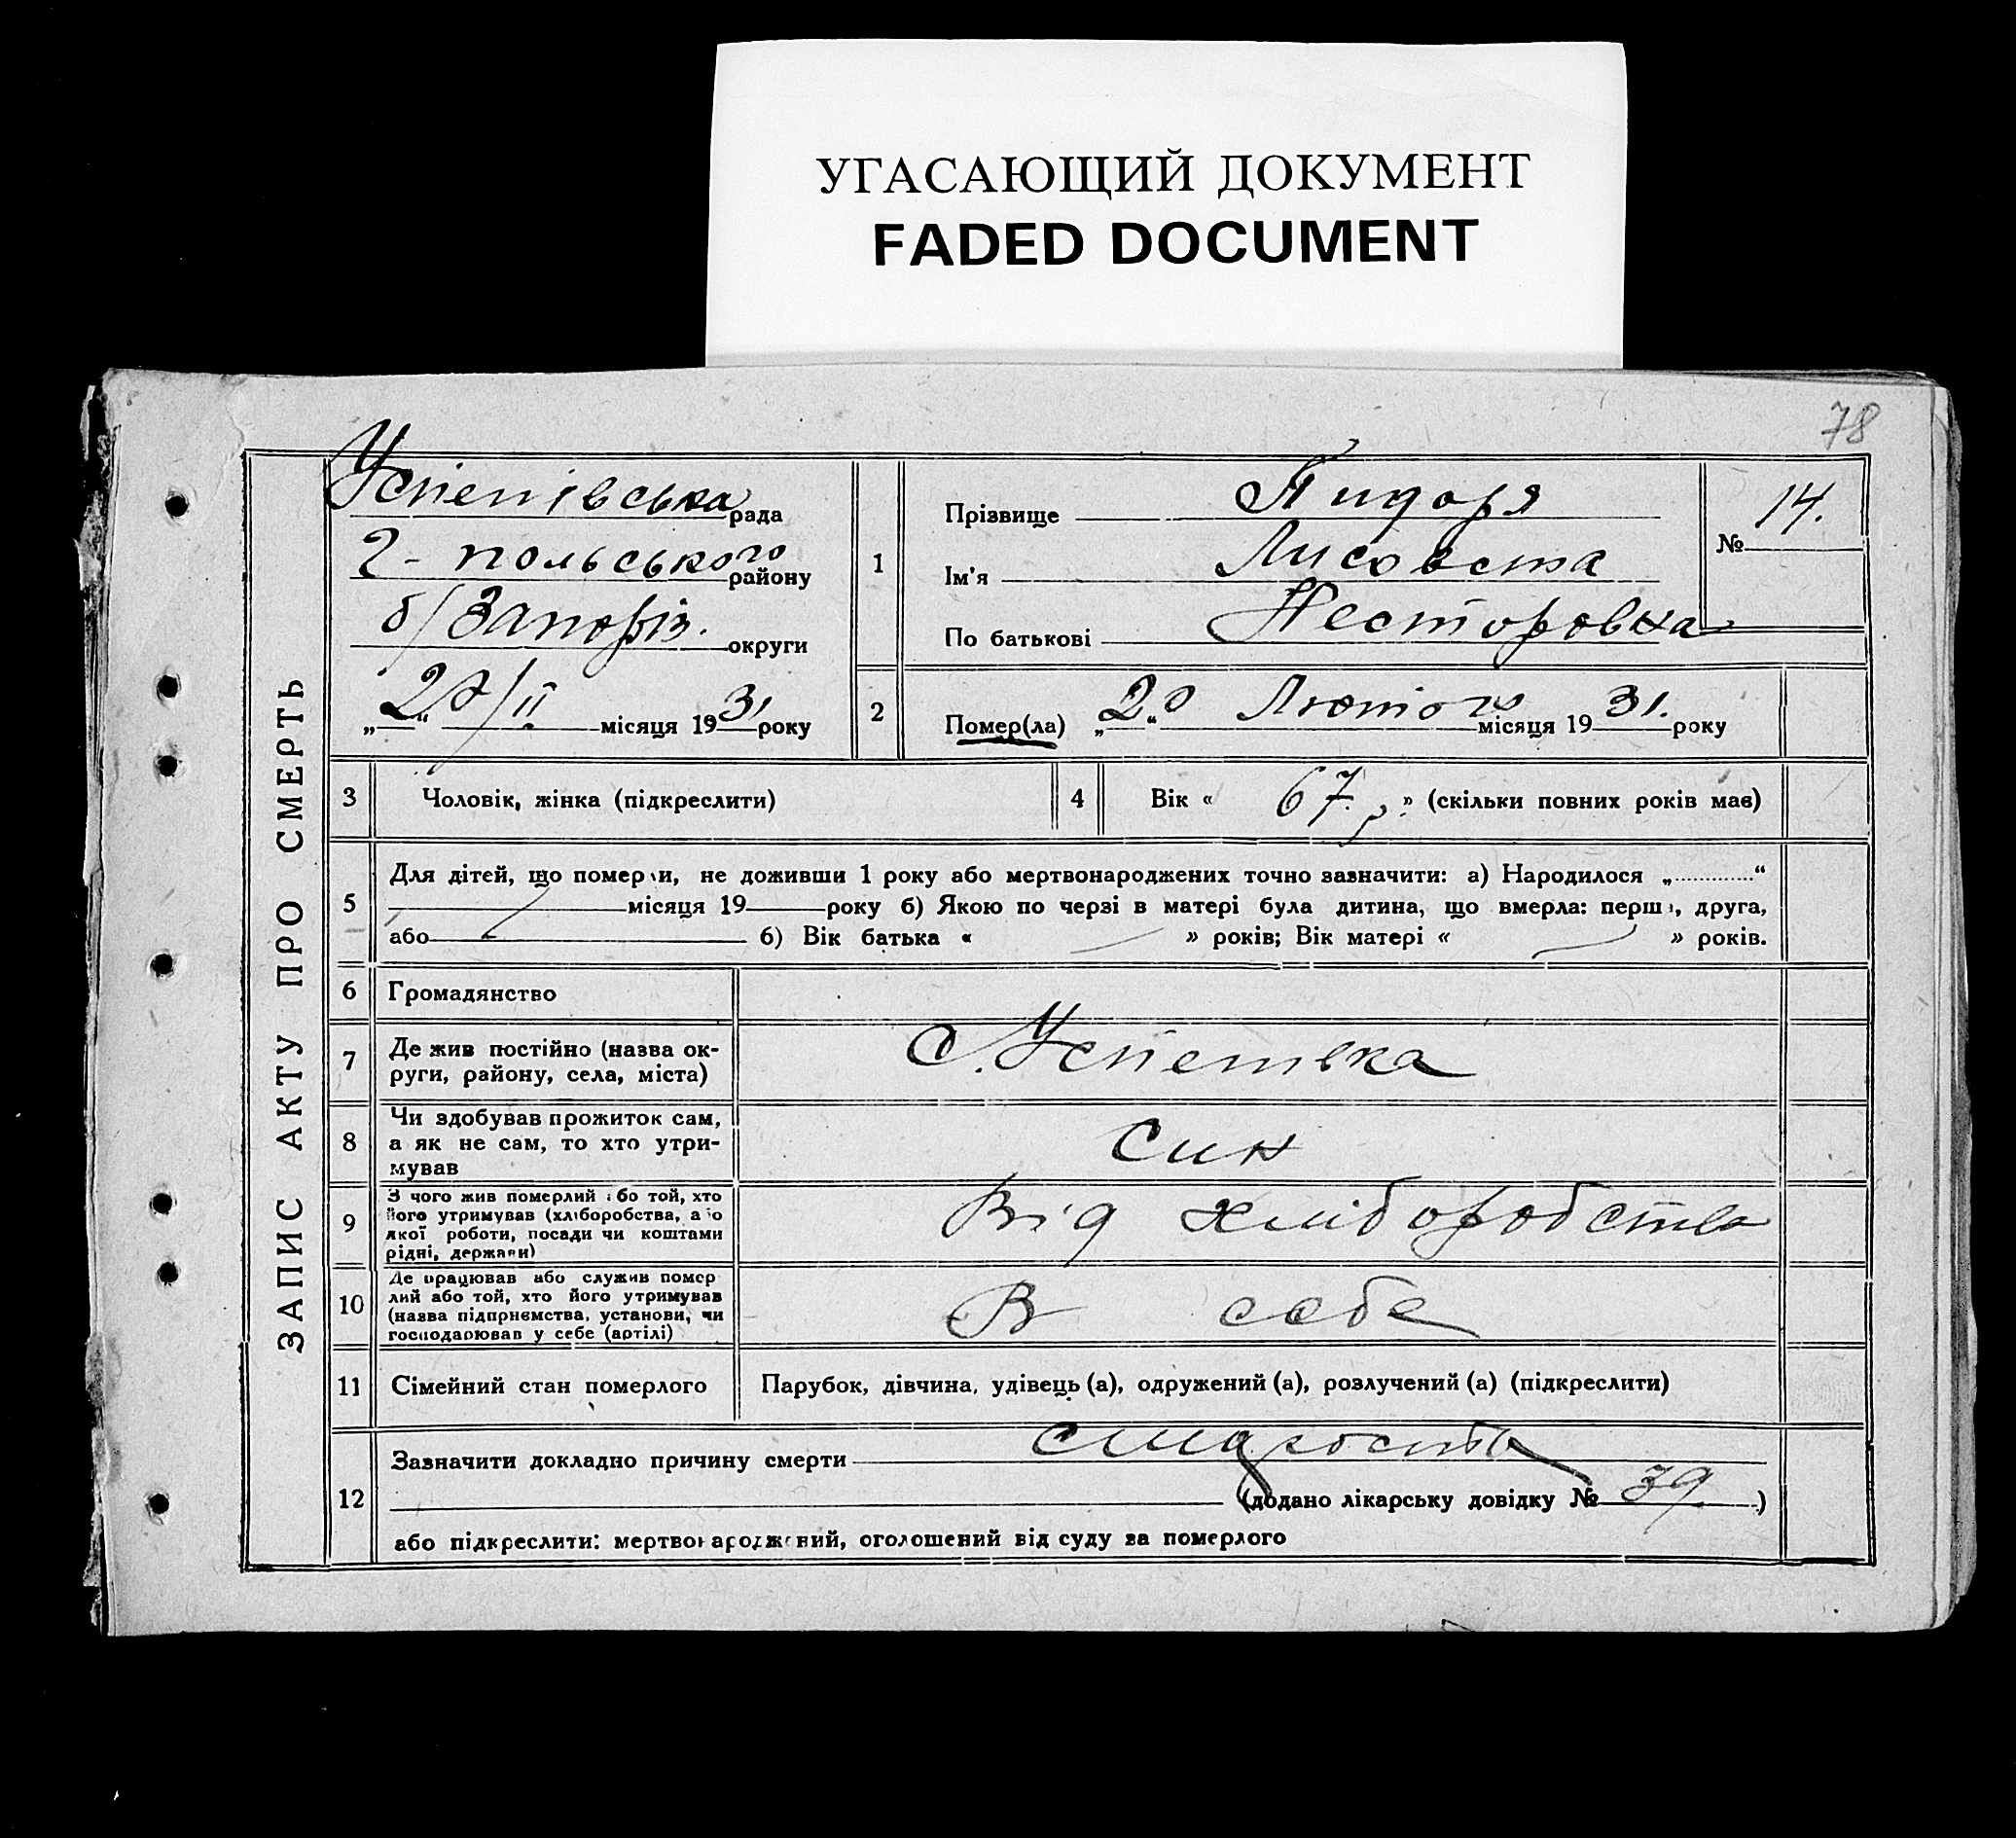 УГАСАЮЩИЙ ДОКУМЕНТ
FADED DOCUMENT
78
ЗАПИС АКТУ ПРО СМЕРТЬ
Успенівська рада
Г-польського району
б/Запоріз. округи
„ “ /II місяця 1931 року
1
Прізвище
Ім'я Лисовета
По батькові Несторовна
№ 14.
2
Помер(ла) „20“ Лютого місяця 1931. року
3
Чоловік, жінка (підкреслити)
4
Вік « 67 р. » (скільки повних років має)
5
Для дітей, що померли, не доживши 1 року або мертвонароджених точно зазначити: а) Народилося „ “
місяця 19 року б) Якою по черзі в матері була дитина, що вмерла: перша, друга,
або б) Вік батька « » років; Вік матері « » років.
6
Громадянство
7
Де жив постійно (назва ок-
руги, району, села, міста)
С. Успенівка
8
Чи здобував прожиток сам,
а як не сам, то хто утри-
мував
Син
9
З чого жив померлий або той, хто
його утримував (хліборобства, або
якої роботи, посади чи коштами
рідні, держави)
Від хліборобства
10
Де працював або служив помер
лий або той, хто його утримував
(назва підприємства, установи, чи
господарював у себе (артілі)
В себе
11
Сімейний стан померлого
Парубок, дівчина, удівець (а), одружений (а), розлучений (а) (підкреслити)
12
Зазначити докладно причину смерти старость
(додано лікарську довідку № 39 )
або підкреслити: мертвонароджений, оголошений від суду за померлого